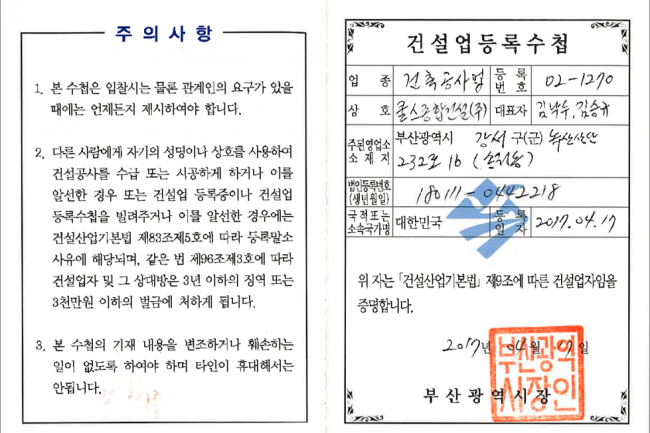 주 의 사 항
1. 본 수첩은 입찰시는 물론 관계인의 요구가 있을
때에는 언제든지 제시하여야 합니다.
2. 다른 사람에게 자기의 성명이나 상호를 사용하여
건설공사를 수급 또는 시공하게 하거나 이를
알선한 경우 또는 건설업 등록증이나 건설업
등록수첩을 빌려주거나 이를 알선한 경우에는
건설산업기본법 제83조제5호에 따라 등록말소
사유에 해당되며, 같은 법 제96조제3호에 따라
건설업자 및 그 상대방은 3년 이하의 징역 또는
3천만원 이하의 벌금에 처하게 됩니다.
3. 본 수첩의 기재 내용을 변조하거나 훼손하는
일이 없도록 하여야 하며 타인이 휴대해서는
안됩니다.
건설업등록수첩
업 종 건축공사업 등 록 번 호 02-1270
상 호 콜스종합건설(주) 대표자 김낙수, 김승규
주된영업소 부산광역시 강서 구(군) 녹산산단
소 재 지 232로 16 (송정동)
법인등록번호
(생년월일) 180111-0442218
국 적 또 는
소속국가명 대한민국 등 록 일 자 2017.04.17
위 자는 「건설산업기본법」 제9조에 따른 건설업자임을
증명합니다.
2017년 04월 17일
부 산 광 역 시 장
부산광역
시장인